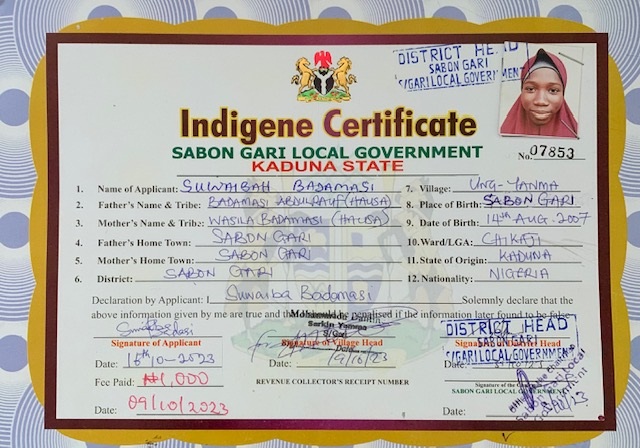 DISTRICT HEAD
SABON GARI
S/GARI LOCAL GOVERNMENT
Indigene Certificate
SABON GARI LOCAL GOVERNMENT
KADUNA STATE
No. 07853
1. Name of Applicant: SUWAIBAH BADAMASI
2. Father's Name & Tribe: BADAMASI ABDULRAUF (HAUSA)
3. Mother's Name & Tribe: WASILA BADAMASI (HAUSA)
4. Father's Home Town: SABON GARI
5. Mother's Home Town: SABON GARI
6. District: SABON GARI
7. Village: UNG-YANMA
8. Place of Birth: SABON GARI
9. Date of Birth: 14th AUG-2007
10. Ward/LGA: CHIKAJI
11. State of Origin: KADUNA
12. Nationality: NIGERIA
Declaration by Applicant: I Suwaiba Badamasi Solemnly declare that the
above information given by me are true and penalised if the information later found to be false
Sarkin Yamma
S/Gari
Signature of Applicant
Signature of Village Head
DISTRICT HEAD
SABON GARI
S/GARI LOCAL GOVERNMENT
Date: 16th 10-2023
Date: 19/10/23
Fee Paid: ₦1,000
REVENUE COLLECTOR'S RECEIPT NUMBER
Signature of the
SABON GARI LOCAL GOVERNMENT
Date: 09/10/2023
Date: